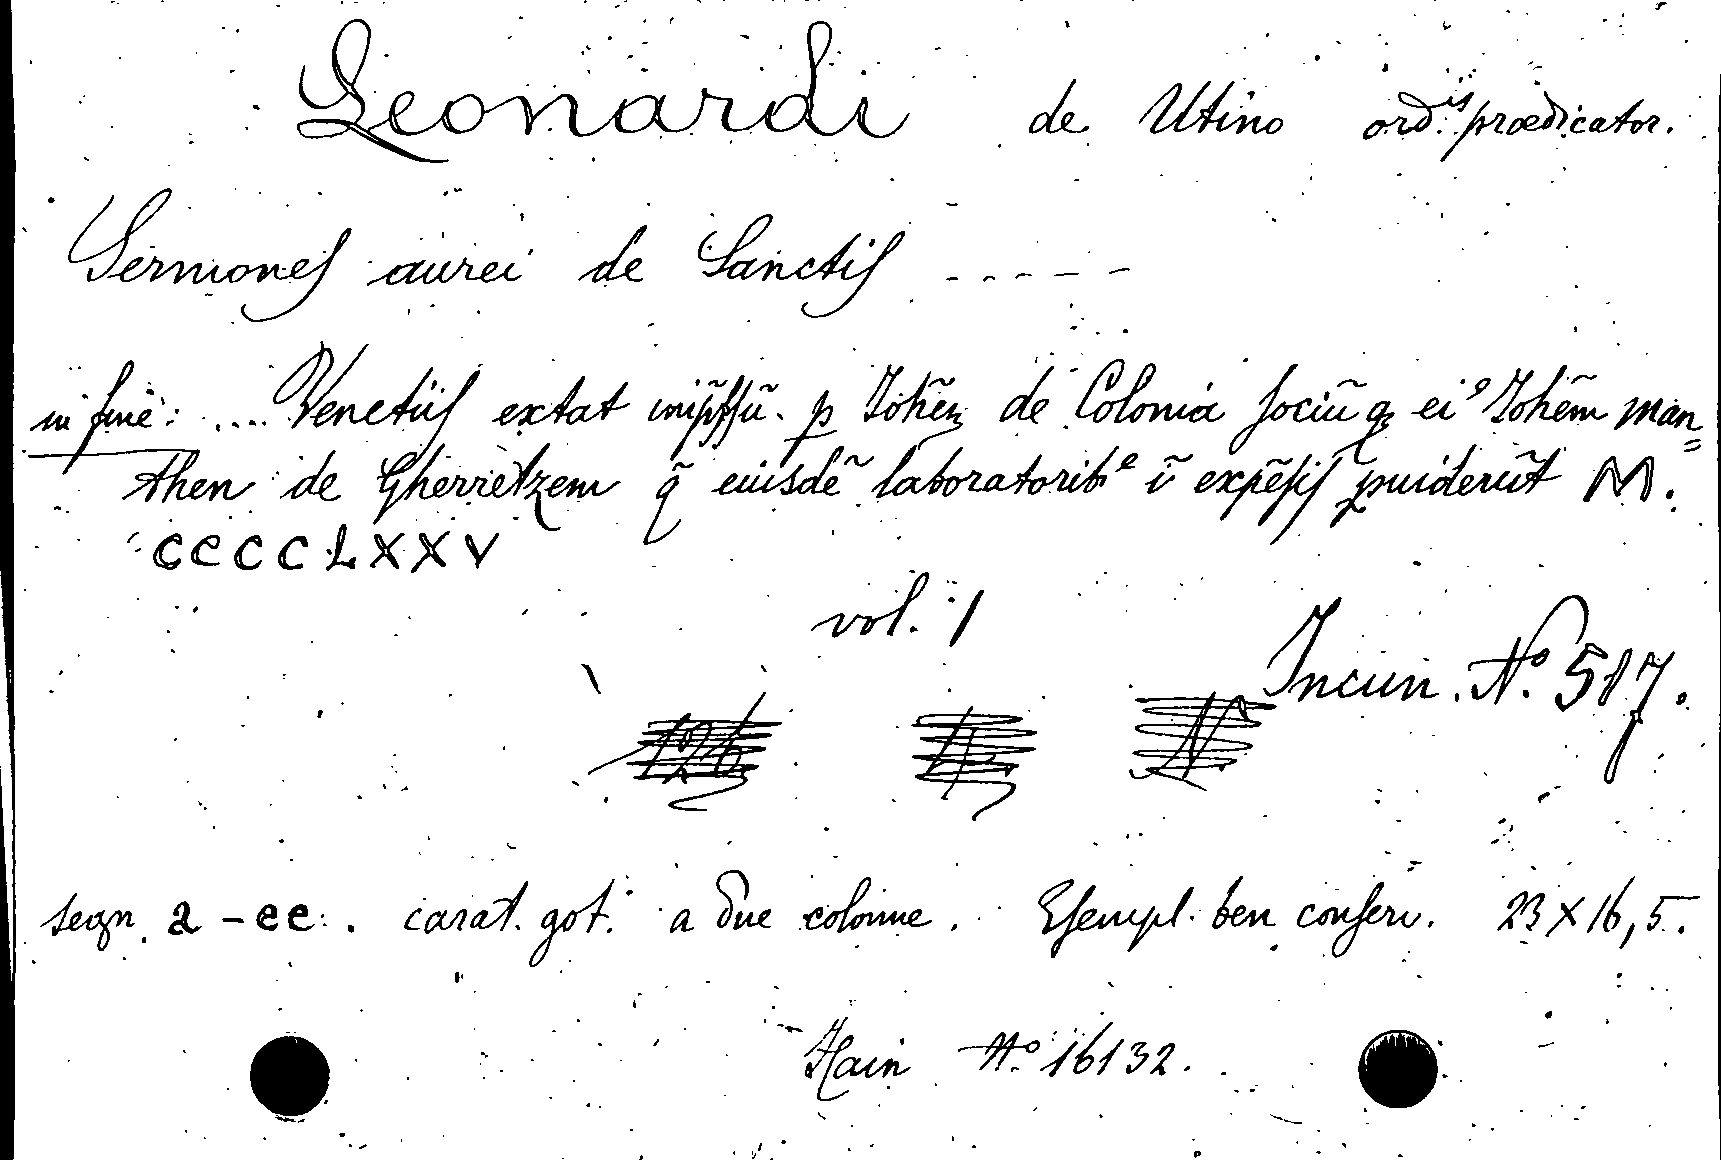 Leonardi de Utino ord.is prædicator.
Sermones aurei de Sanctis -----
in fine: .... Venetiis extat imp̃ssũ. p Johẽz de Colonia sociũ qz eiꝰ Johẽm man=
then de Gherretzem q̃ eiusdẽ laboratoribꝰ ĩ expẽsis puiderũt M.
CCCCLXXV
vol. 1
Incun. Nº 517.
segn. a-ee. carat. got. a due colonne. Esempl. ben conserv. 23 x 16,5.
Hain Nº 16132.